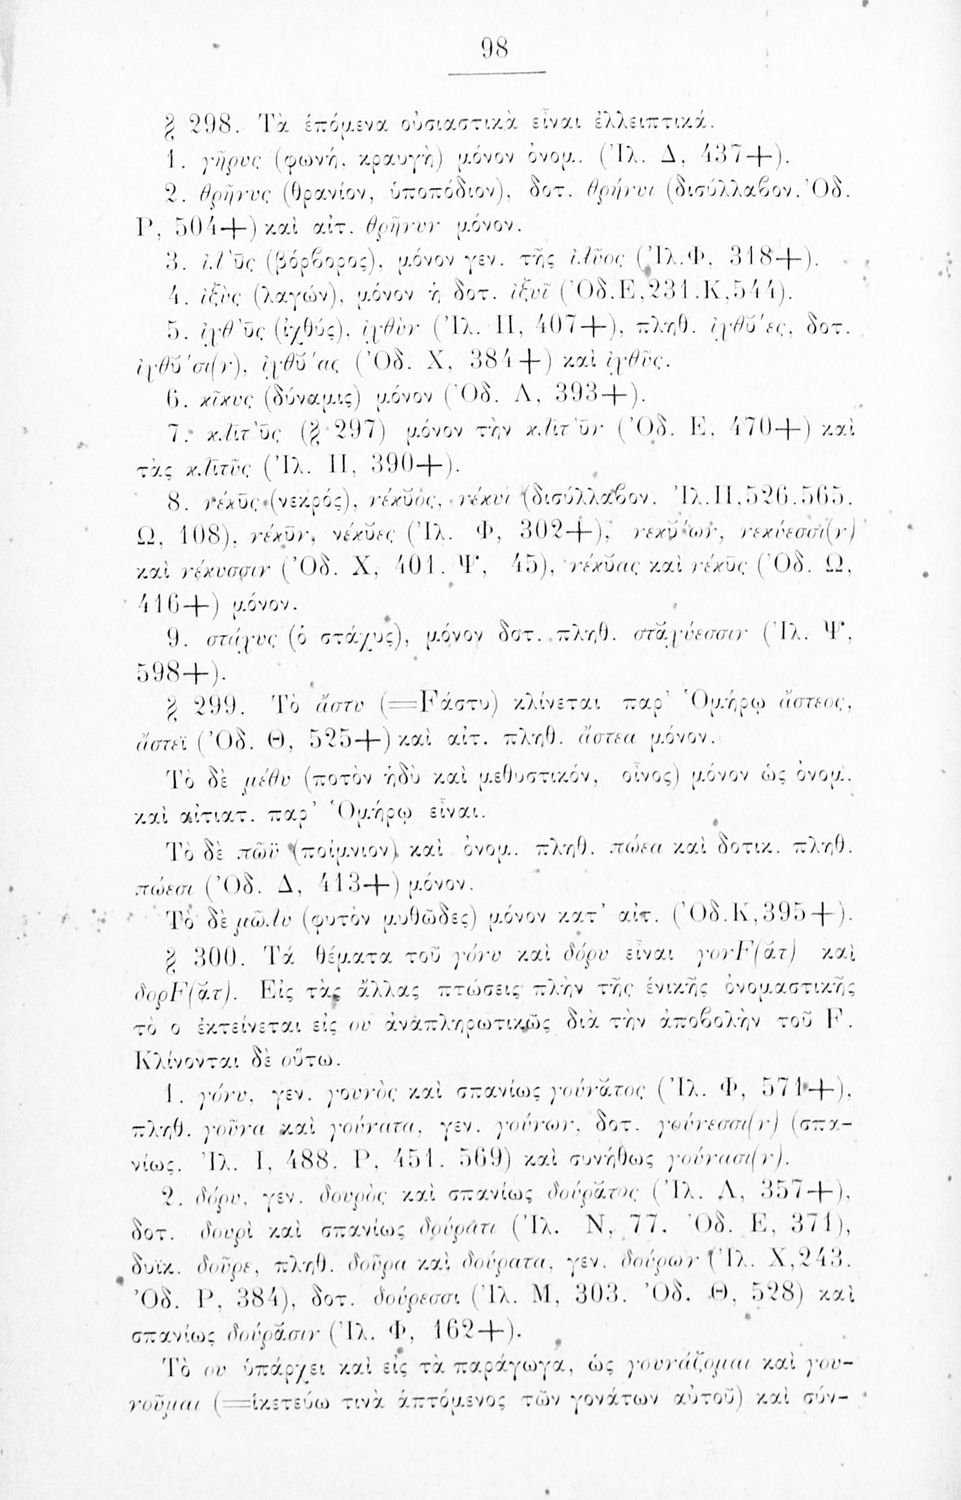 98
§ 298. Τὰ ἑπόμενα οὐσιαστικὰ εἶναι ἐλλειπτικά.
1. γῆρυς (φωνή, κραυγὴ) μόνον ὀνομ. (Ἰλ. Δ, 437+).
2. θρῆνυς (θρανίον, ὑποπόδιον), δοτ. θρήνυι (δισύλλαβον. Ὀδ.
Ρ, 504+) καὶ αἰτ. θρῆνυν μόνον.
3. ἰλῡ́ς (βόρβορος), μόνον γεν. τῆς ἰλῦος (Ἰλ.Φ, 318+).
4. ἰξὺς (λαγών), μόνον ἡ δοτ. ἰξυῖ (Ὀδ.Ε,231.Κ,544).
5. ἰχθῡ́ς (ἰχθύς), ἰχθὺν (Ἰλ. Π, 407+), πληθ. ἰχθῠ́ες, δοτ.
ἰχθῠ́σι(ν), ἰχθῠ́ας (Ὀδ. Χ, 384+) καὶ ἰχθῦς.
6. κῖκυς (δύναμις) μόνον (Ὀδ. Λ, 393+).
7. κλιτῡ́ς (§ 297) μόνον τὴν κλιτῡ́ν (Ὀδ. Ε, 470+) καὶ
τὰς κλῑτῦς (Ἰλ. Π, 390+).
8. νέκῡς (νεκρός), νέκῠος, νέκυι (δισύλλαβον. Ἰλ.Π,526.565.
Ω, 108), νέκῡν, νέκῠες (Ἰλ. Φ, 302+), νεκῠ́ων, νεκύεσσῐ(ν)
καὶ νέκυσσιν (Ὀδ. Χ, 401. Ψ, 45), νέκῠας καὶ νέκῡς (Ὀδ. Ω,
416+) μόνον.
9. στάχυς (ὁ στάχυς), μόνον δοτ. πληθ. στᾰχύεσσιν (Ἰλ. Ψ,
598+).
§ 299. Τὸ ἄστυ (=Fάστυ) κλίνεται παρ' Ὁμήρῳ ἄστεος,
ἄστεϊ (Ὀδ. Θ, 525+) καὶ αἰτ. πληθ. ἄστεα μόνον.
Τὸ δὲ μέθυ (ποτὸν ἡδὺ καὶ μεθυστικόν, οἶνος) μόνον ὡς ὀνομ.
καὶ αἰτιατ. παρ' Ὁμήρῳ εἶναι.
Τὸ δὲ πῶϋ (ποίμνιον) καὶ ὀνομ. πληθ. πώεα καὶ δοτικ. πληθ.
πώεσι (Ὀδ. Δ, 413+) μόνον.
Τὸ δὲ μῶλυ (φυτὸν μυθῶδες) μόνον κατ' αἰτ. (Ὀδ.Κ,395+).
§ 300. Τά θέματα τοῦ γόνυ καὶ δόρυ εἶναι γονF(ᾰτ) καὶ
δορF(ᾰτ). Εἰς τὰς ἄλλας πτώσεις πλὴν τῆς ἑνικῆς ὀνομαστικῆς
τὸ ο ἐκτείνεται εἰς ου ἀναπληρωτικῶς διὰ τὴν ἀποβολὴν τοῦ F.
Κλίνονται δὲ οὕτω.
1. γόνυ, γεν. γουνὸς καὶ σπανίως γούνᾰτος (Ἰλ. Φ, 571+),
πληθ. γοῦνα καὶ γούνατα, γεν. γούνων, δοτ. γούνεσσι(ν) (σπα-
νίως. Ἰλ. Ι, 488. Ρ, 451. 569) καὶ συνήθως γούνασι(ν).
2. δόρυ, γεν. δουρὸς καὶ σπανίως δούρᾰτος (Ἰλ. Λ, 357+),
δοτ. δουρὶ καὶ σπανίως δούρᾰτι (Ἰλ. Ν, 77. Ὀδ. Ε, 371),
δυϊκ. δοῦρε, πληθ. δοῦρα καὶ δούρατα, γεν. δούρων (Ἰλ. Χ,243.
Ὀδ. Ρ, 384), δοτ. δούρεσσι (Ἰλ. Μ, 303. Ὀδ. Θ, 528) καὶ
σπανίως δούρᾰσιν (Ἰλ. Φ, 162+).
Τὸ ου ὑπάρχει καὶ εἰς τὰ παράγωγα, ὡς γουνάζομαι καὶ γου-
νοῦμαι (=ἱκετεύω τινὰ ἁπτόμενος τῶν γονάτων αὐτοῦ) καὶ σύν-